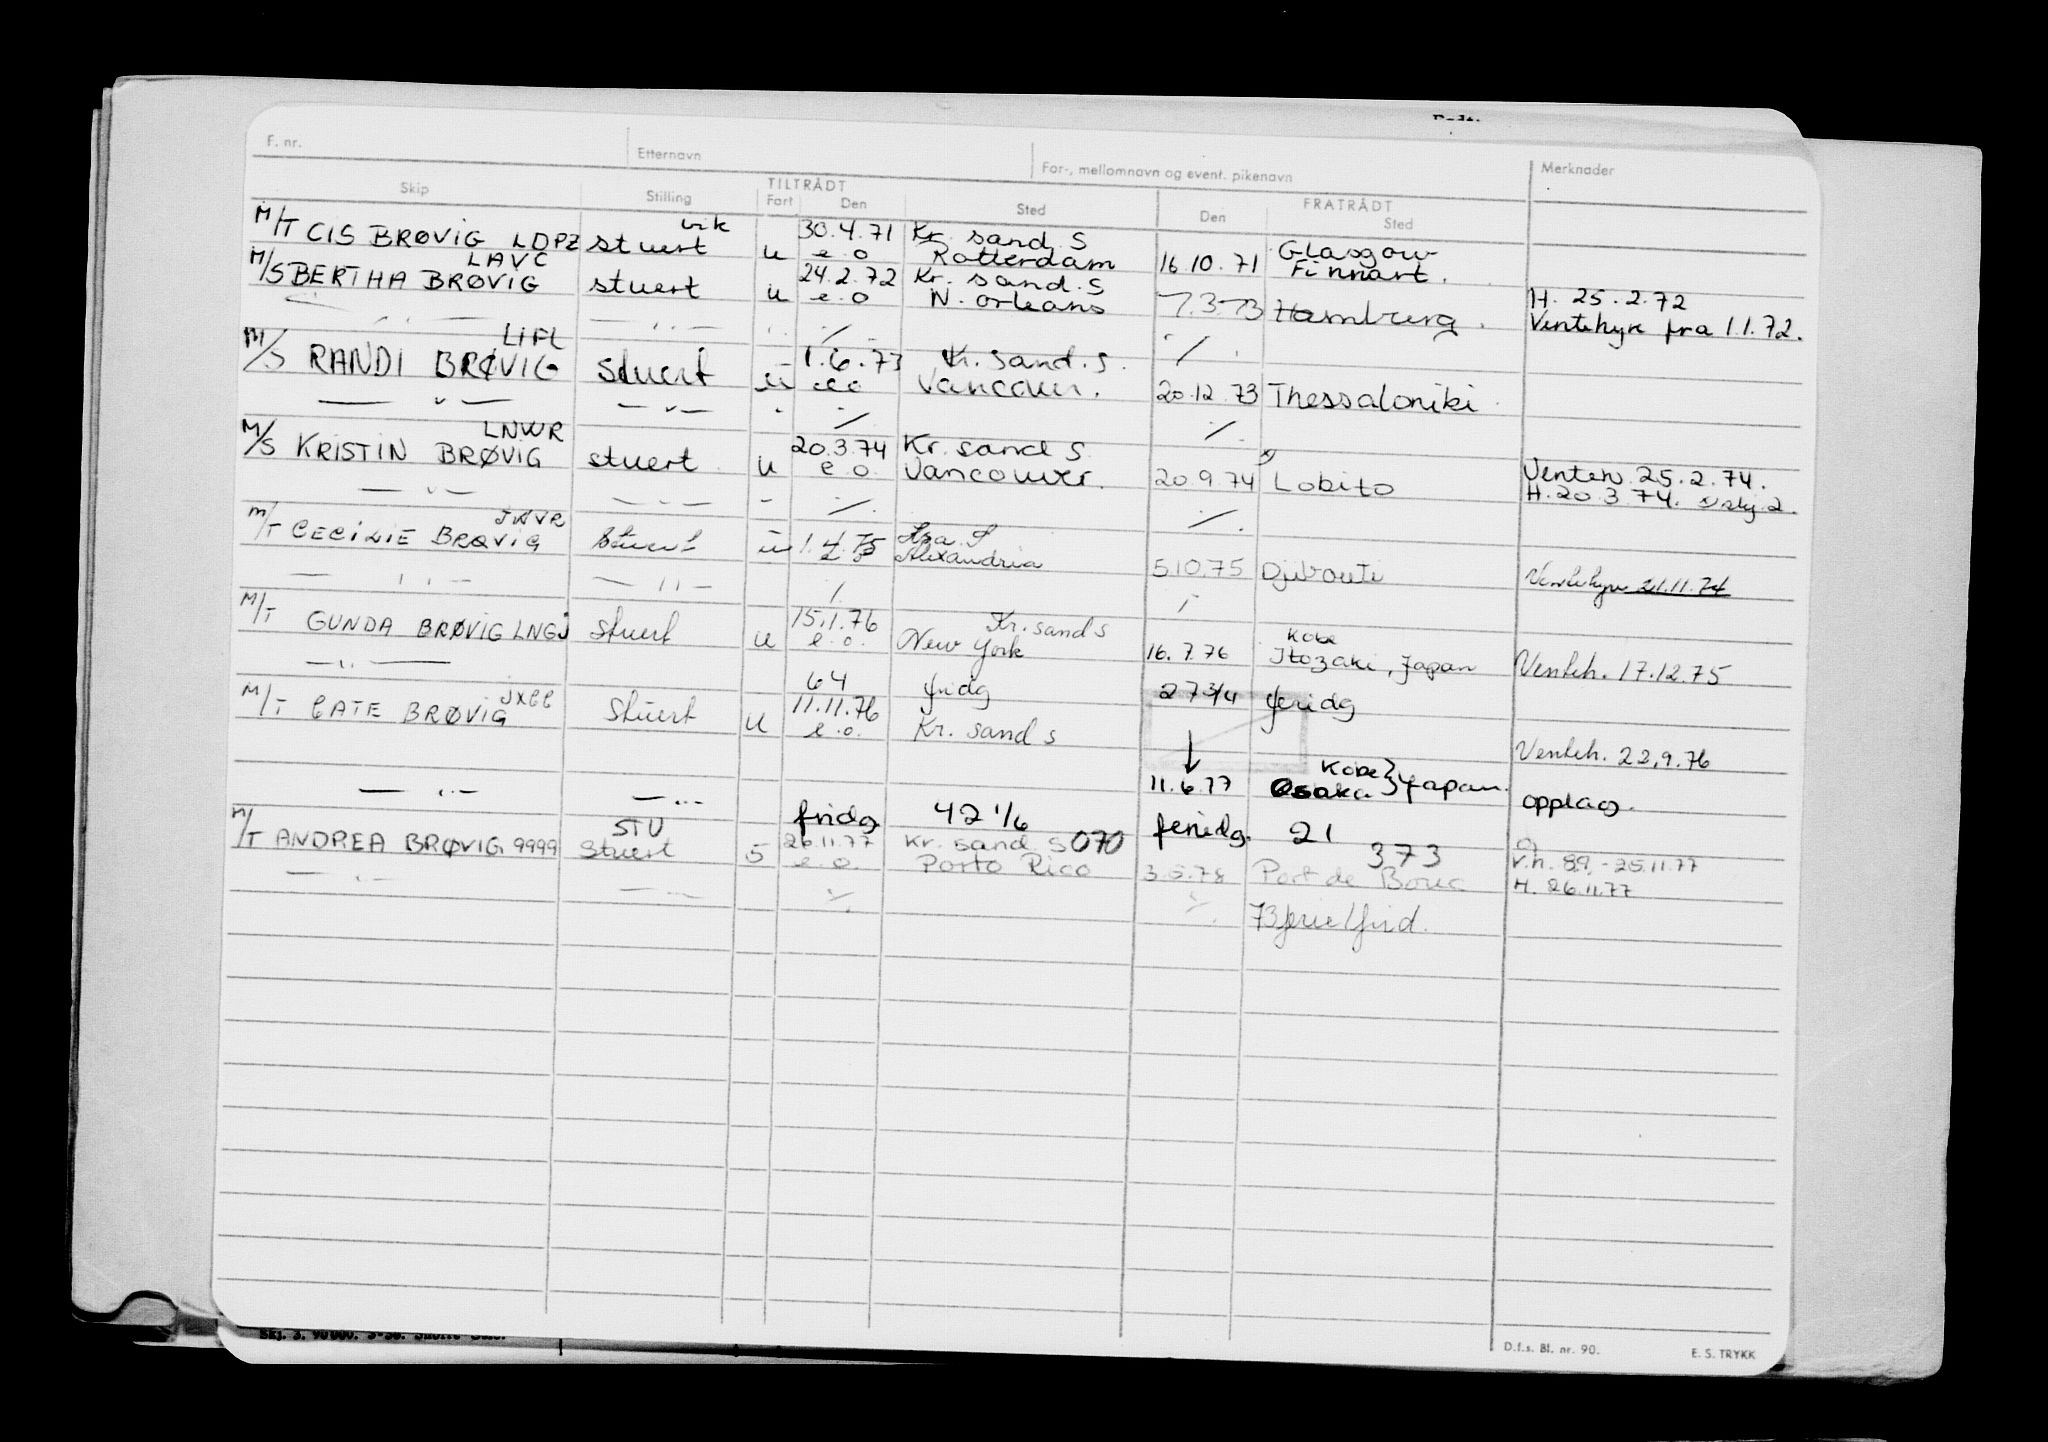 F. nr. Etternavn For-, mellomnavn og event. pikenavn Merknader
Skip Stilling TILTRÅDT FRATRÅDT
Fart Den Sted Den Sted
M/T CIS BRØVIG LDPZ stuert vik u 30.4.71 Kr. sand. S 16.10.71 Glasgow
e.o Rotterdam Finnart.
LAVC
M/S BERTHA BRØVIG stuert u 24.2.72 Kr. sand. S 7.3.73 Hamburg. H. 25.2.72
e.o N. orleans Ventehyre fra 1.1.72.
LIFL
M/S RANDI BRØVIG stuert u 1.6.73 Kr. sand. S. 20.12.73 Thessaloniki
e.o Vancouver.
LNWR
M/S KRISTIN BRØVIG stuert u 20.3.74 Kr. sand S. 20.9.74 Lobito Venteh. 25.2.74.
e.o. Vancouver. H. 20.3.74.
JWVR
M/T CECILIE BRØVIG Stuert u 1.4.75 5.10.75 Djibouti Ventehyre 21.11.74
Alexandria
M/T GUNDA BRØVIG LNGJ Stuert u 15.1.76 Kr. sand S 16.7.76 Kobe
e.o. New York Itozaki, Japan Venteh. 17.12.75
64 fridg 27 3/4 feridg
M/T CATE BRØVIG Stuert u 11.11.76
e.o. Kr. sand s Venteh. 22.9.76
11.6.77 Kobe } Japan.
Osaka opplag.
STU fridg. 42 1/6 feridg. 21
M/T ANDREA BRØVIG 9999 Stuert 5 26.11.77 Kr. sand S 070 373 v.h. 8.9.-25.11.77
e.o. Porto Rico 3.5.78 Port de Bouc H. 26.11.77
73 ferie/frid.
D.f.s. Bl. nr. 90. E. S. TRYKK